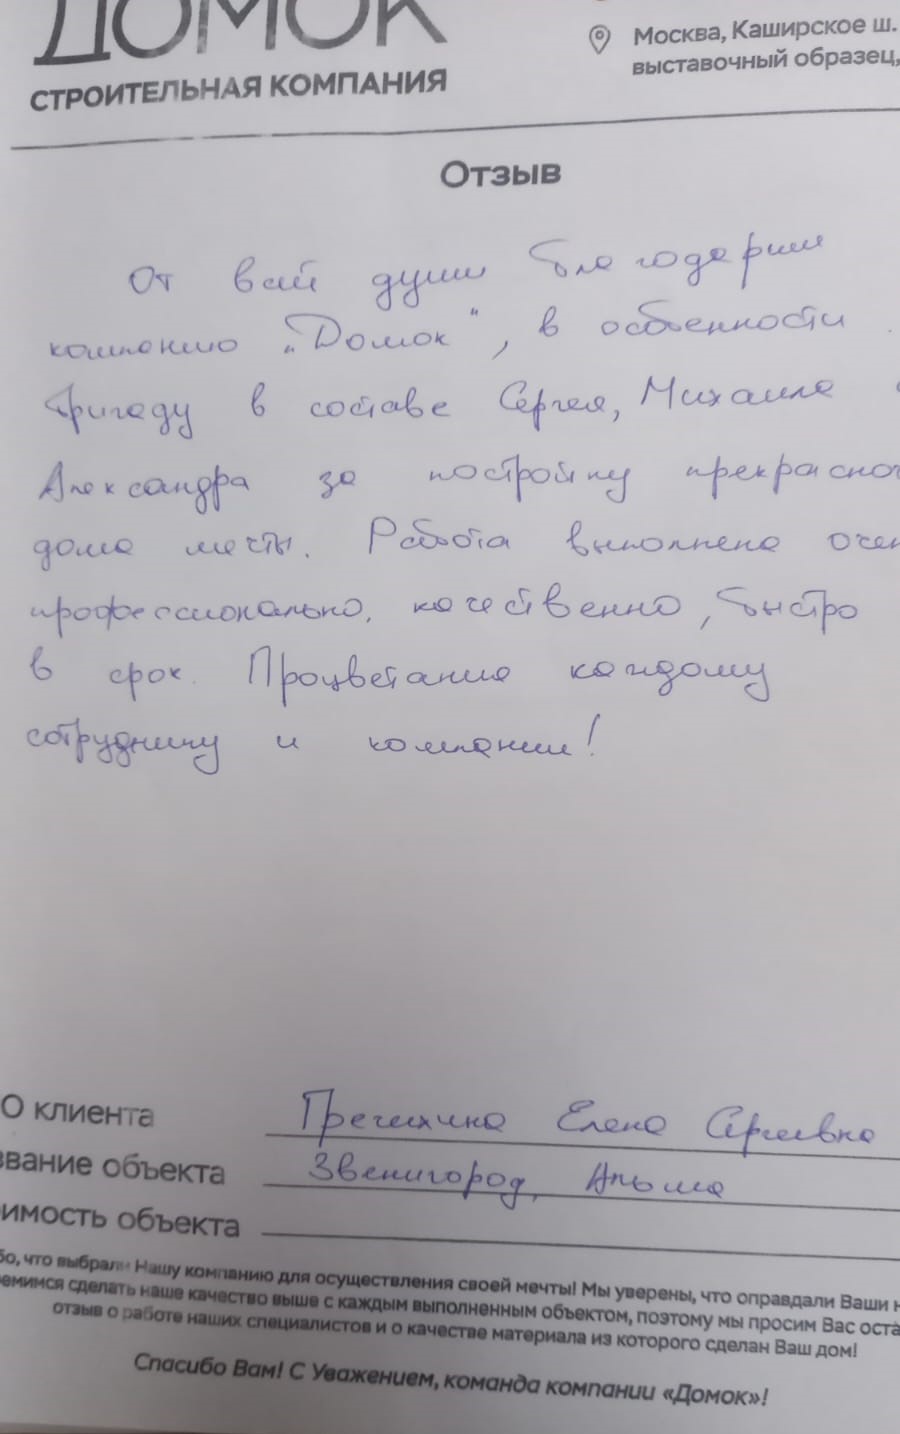 ДОМОК
СТРОИТЕЛЬНАЯ КОМПАНИЯ
Москва, Каширское ш.
выставочный образец,
Отзыв
От всей души благодарим
компанию "Домок", в особенности
бригаду в составе Сергея, Михаила
Александра за постройку прекрасног
дома мечты. Работа выполнена очен
профессионально, качественно, быстро
в срок. Процветания каждому
сотруднику и компании!
О клиента
Елена Сергеевна
звание объекта
Звенигород,
имость объекта
бо, что выбрали Нашу компанию для осуществления своей мечты! Мы уверены, что оправдали Ваши н
емимся сделать наше качество выше с каждым выполненным объектом, поэтому мы просим Вас оста
отзыв о работе наших специалистов и о качестве материала из которого сделан Ваш дом!
Спасибо Вам! С Уважением, команда компании «Домок»!